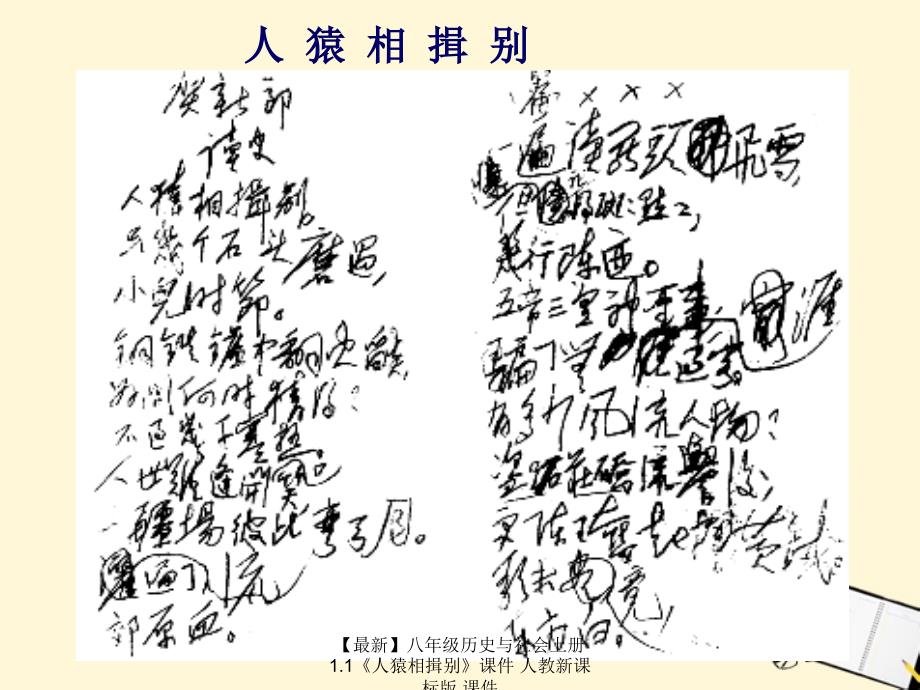 人猿相揖别
贺新郎
读史
人猿相揖别。
只几个石头磨过，
小儿时节。
铜铁炉中翻火焰，
为问何时猜得？
不过几千寒热。
人世难逢开口笑
疆场彼此弯弓月。
流
郊原血。
× × ×
一遍读罢头飞雪，
但记得斑斑点点，
几行陈迹。
五帝三皇神圣事，
骗了无涯过客。
有多少风流人物？
盗跖庄屩流誉后，
更陈王奋起挥黄钺。
歌未竟，
东方白。
【最新】八年级历史与社会上册
1.1《人猿相揖别》课件 人教新课
标版 课件